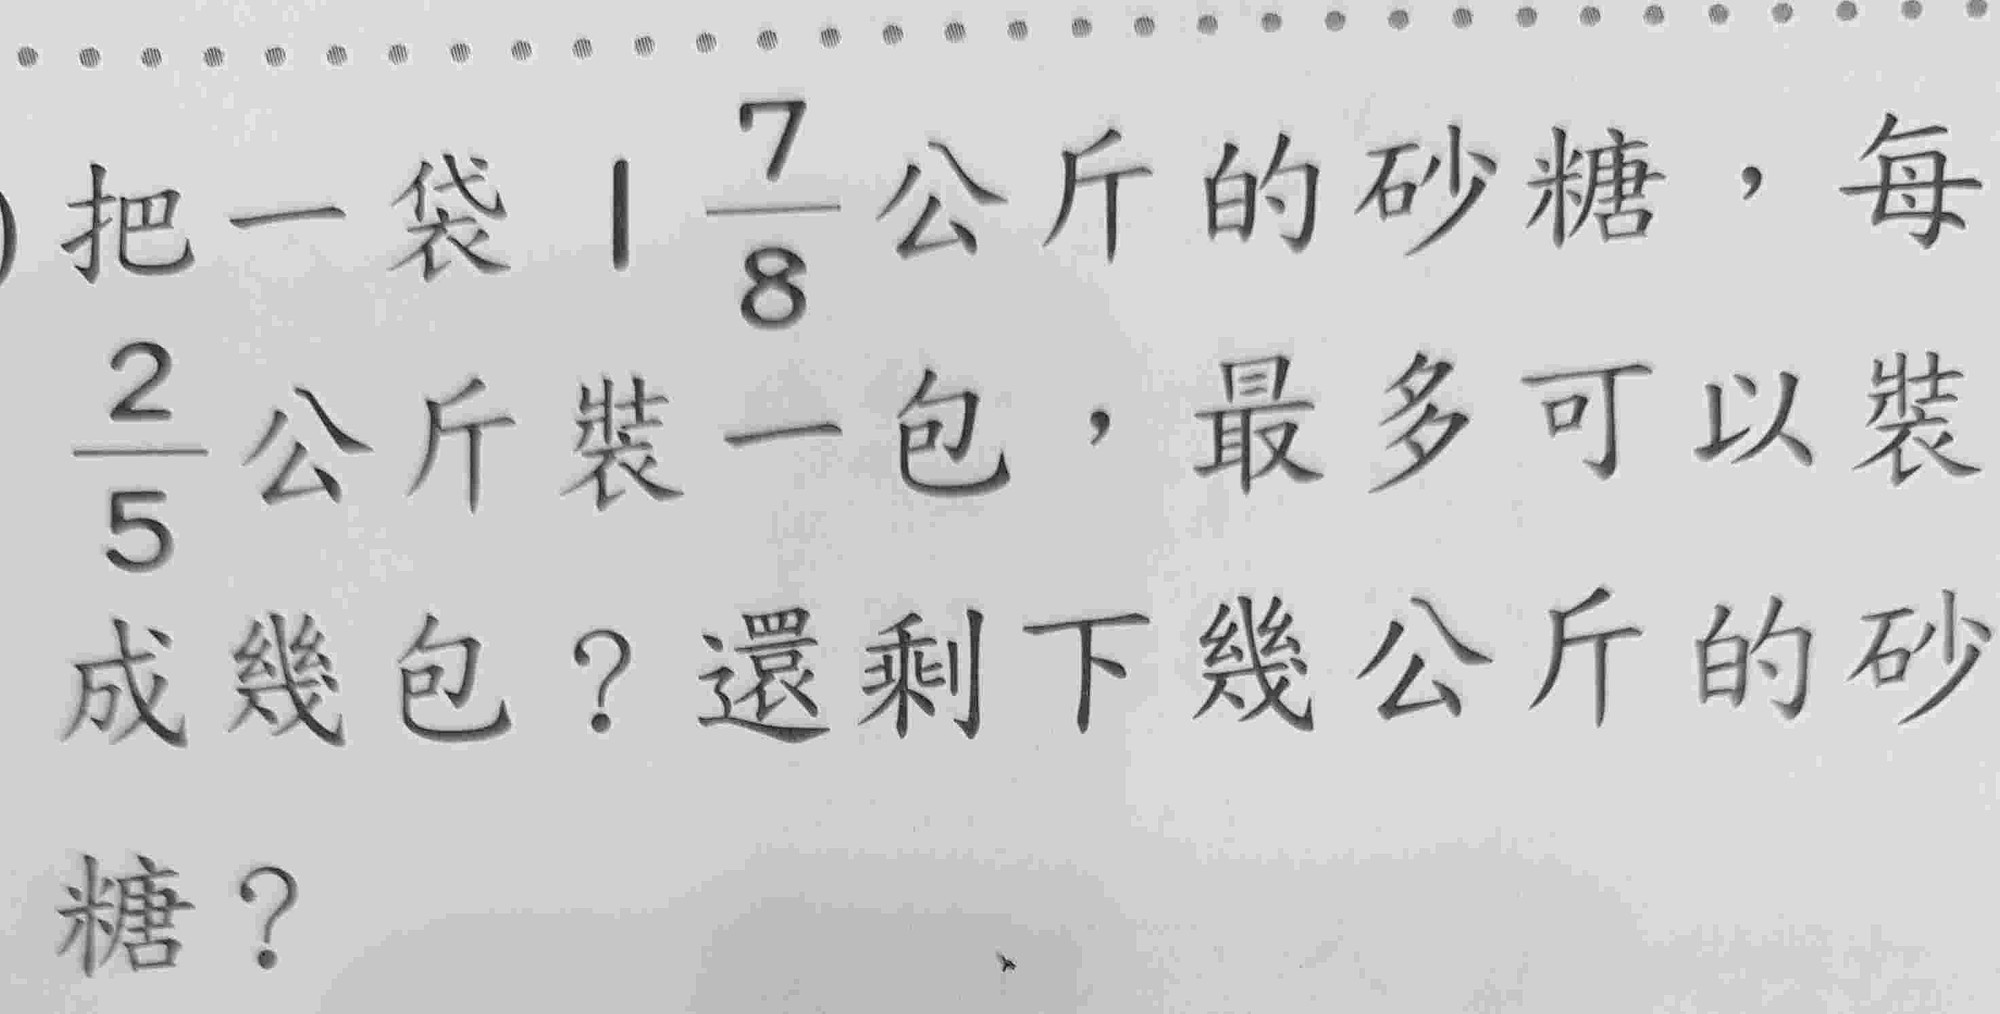 )把一袋1 7/8公斤的砂糖，每
2/5公斤裝一包，最多可以裝
成幾包？還剩下幾公斤的砂
糖？